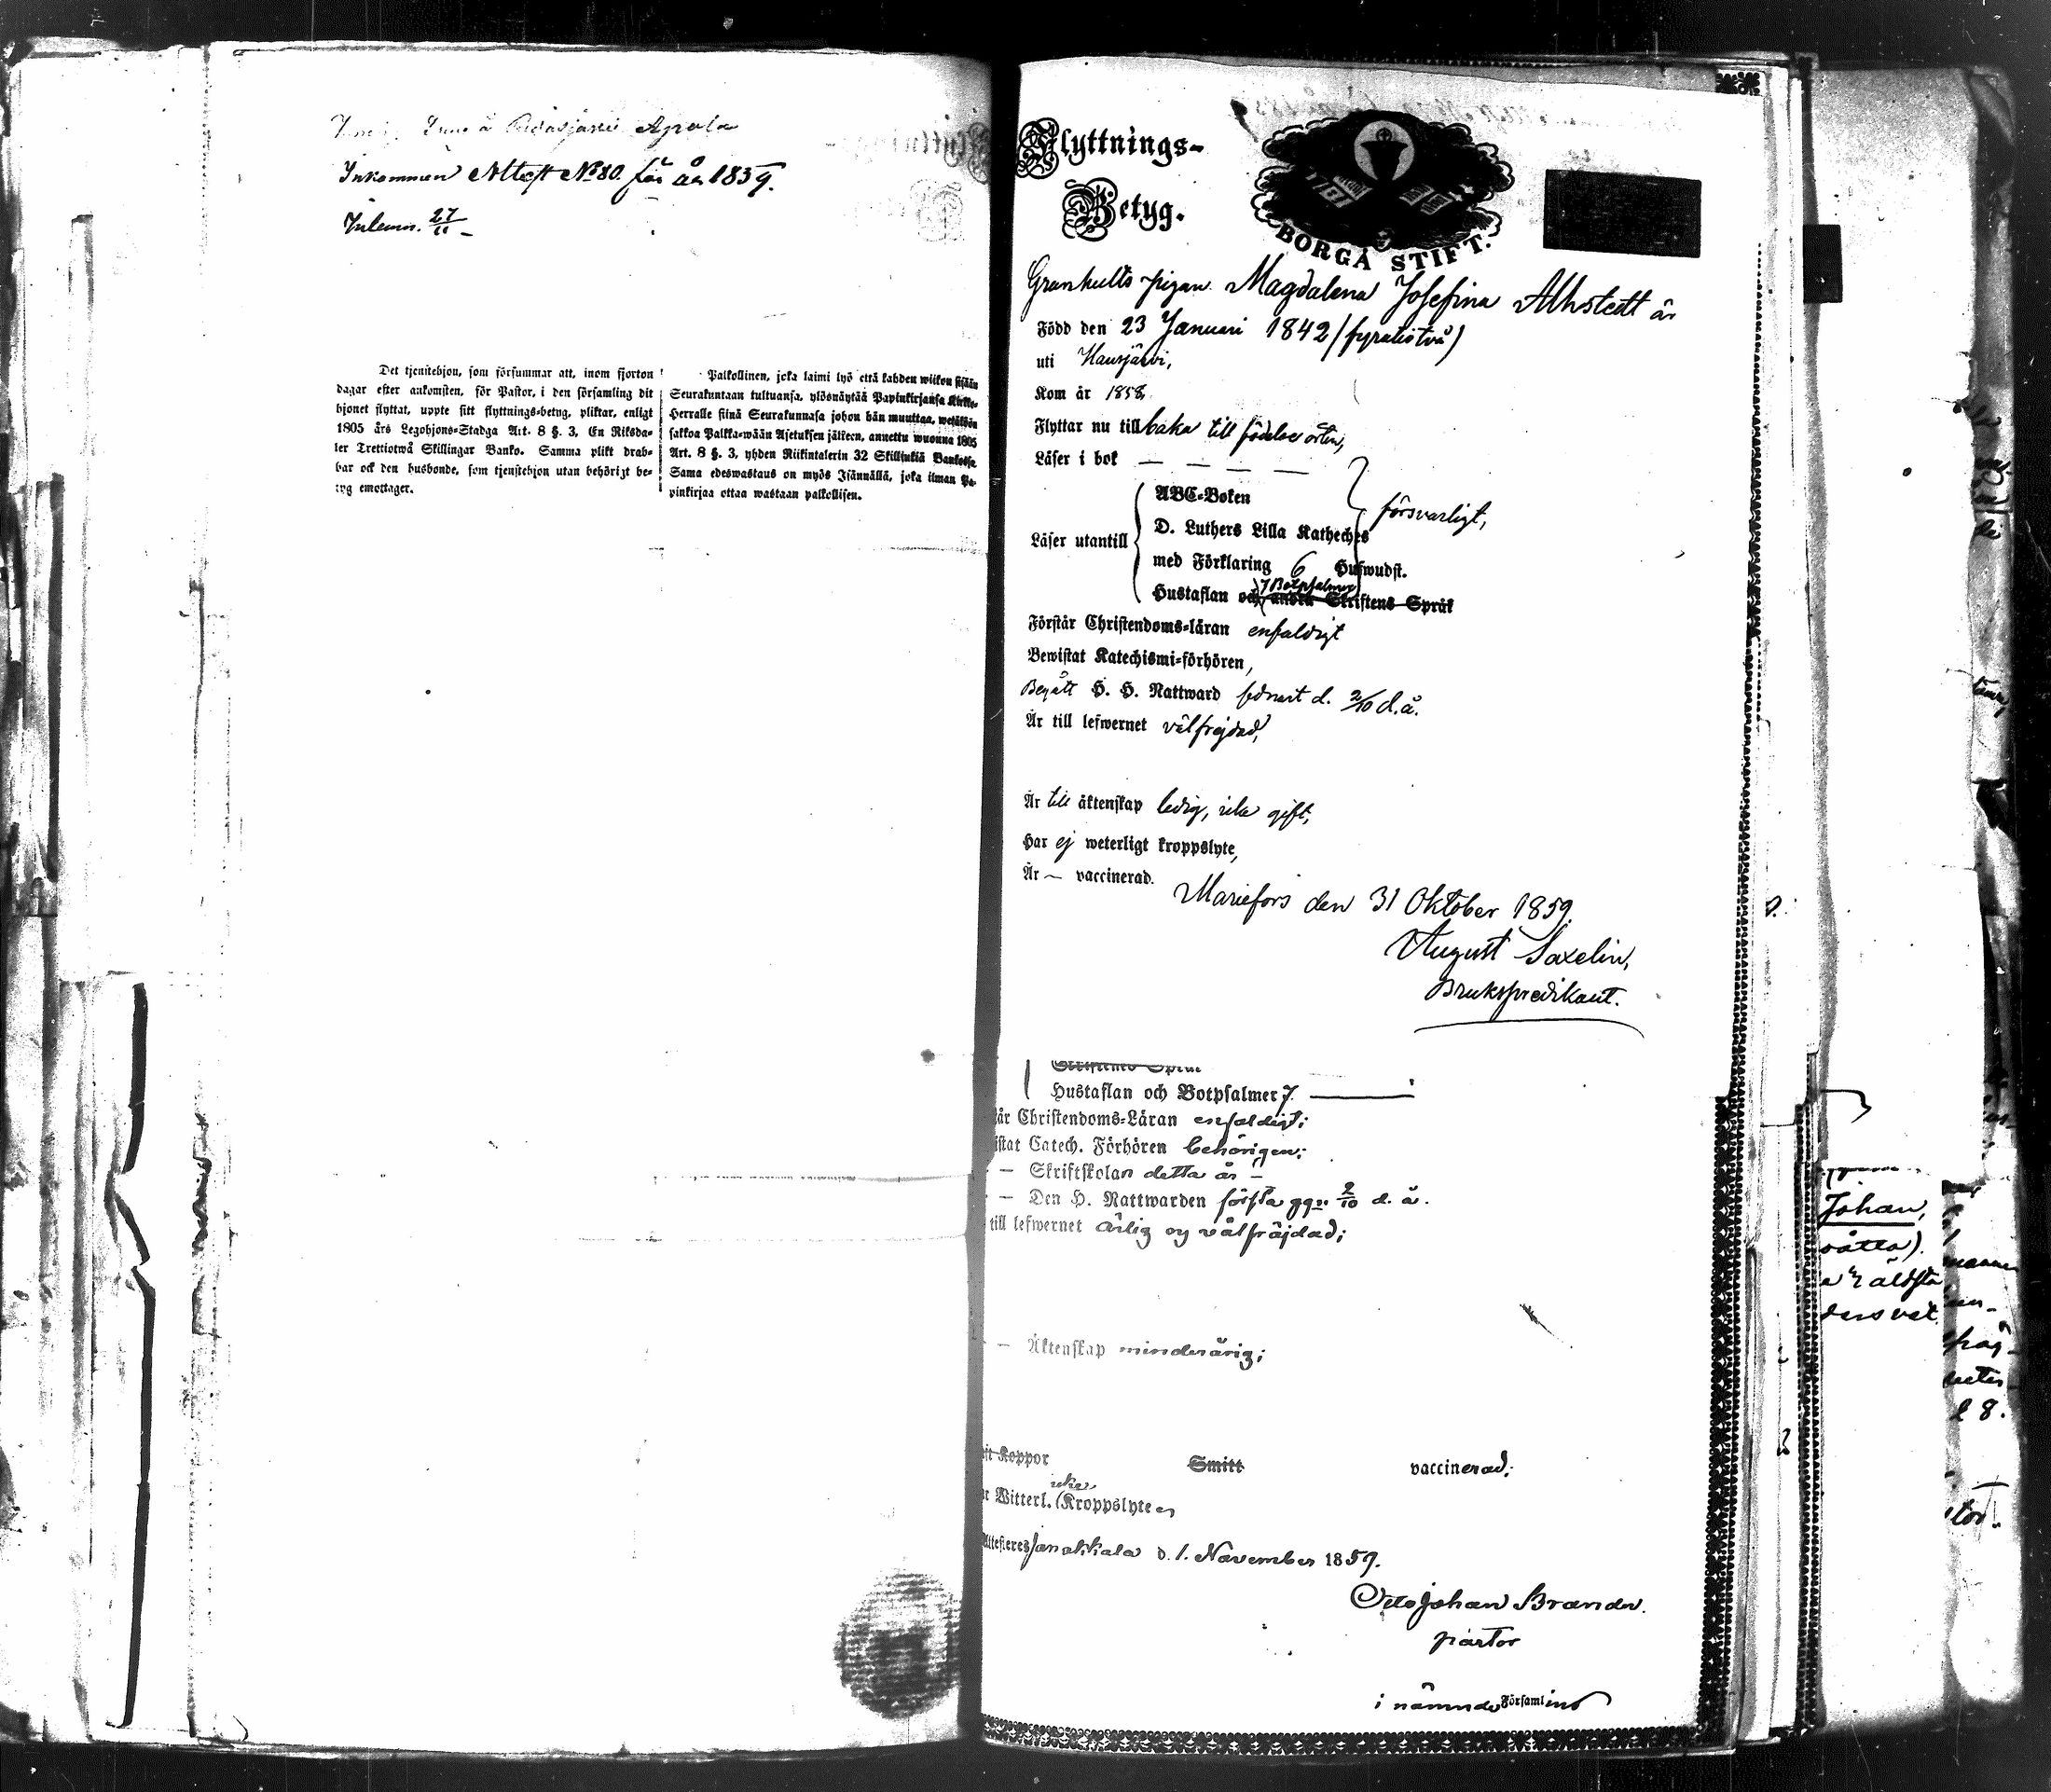 Inkommen Attest No 80. för år 1859.
Inlemn. 27/11 –
Det tjenstehjon, som försummar att, inom fjorton
dagar efter ankomsten, för Pastor, i den församling dit
hjonet flyttat, uppte sitt flyttnings-betyg, pliktar, enligt
1805 års Legohjons-Stadga Art. 8 §. 3, En Riksda-
ler Trettiotwå Skillingar Banko. Samma plikt drab-
bar ock den husbonde, som tjenstehjon utan behörigt be-
tyg emottager.
Palkollinen, joka laimi lyö että kahden wiikon sisään
Seurakuntaan tultuansa, ylösnäytää Papinkirjansa Kirkko-
Herralle siinä Seurakunnasa johon hän muuttaa, wetäkön
sakkoa Palkka-wään Asetuksen jälkeen, annettu wuonna 1805
Art. 8 §. 3, yhden Riikintalerin 32 Skillinkiä Bankossa
Sama edeswastaus on myös Isännällä, joka ilman Pa-
pinkirjaa ottaa wastaan palkollisen.
Flyttnings-
Betyg.
BORGÅ STIFT.
Grankulls pigan Magdalena Josefina Alhstedt är
Född den 23 Januari 1842 (fyratiotvå)
uti Hausjärvi,
Kom år 1858,
Flyttar nu tillbaka till födelse orten,
Läser i bok — — — —
Läser utantill
ABC-Boken
D. Luthers Lilla Kateches
med Förklaring 6 Hufwudst.
försvarligt,
7 Botpsalmer
Hustaflan och andra Skriftens Språk
Förstår Christendoms-läran enfaldigt
Bewistat Katechismi-förhören,
Begått H. H. Nattward sednast d. 2/10 d.å.
Är till lefwernet välfrejdad,
Är till äktenskap ledig, icke gift,
Har ej weterligt kroppslyte,
Är – vaccinerad.
Mariefors den 31 Oktober 1859.
August Saxelin,
Brukspredikant.
Skriftenes Språk
Hustaflan och Botpsalmer 7.
år Christendoms-Läran enfaldigt;
istat Catech. Förhören behörigen;
— Skriftskolan detta år –
— Den H. Nattwarden första ggn 2/10 d. å.
till lefwernet ärlig og välfräjdad;
— Äktenskap minderårig;
Koppor Smitt vaccinerad;
icke
Witterl. Kroppslyte
Attesteres Janakkala d. 1. November 1859.
Otto Johan Brander.
pastor
i nämnde Församling
Johan,
åtta).
äldsta